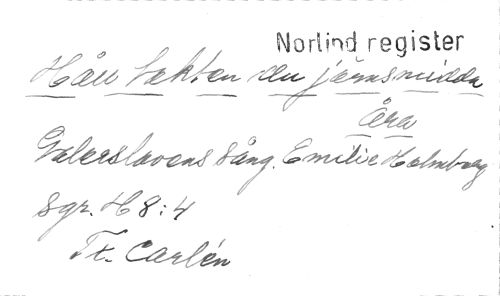 Norlind register
Håll takten du järnsmidda
Åra
Galerslavens sång. Emilie Holmberg
Sgr. H 8:4
Tt. Carlén